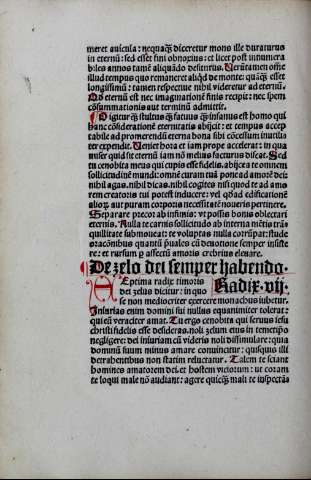 meret auicula: nequaq̃ȝ diceretur mono ille duraturus
in eternũ: sed esset fini obnoxius: et licet post innumera
biles annos tamẽ aliquãdo desiturus. Uerũtamen om̃e
illud tempus quo remaneret aliqd de monte: quãq̃ȝ esset
longissimũ: tamen respectiue nihil videretur ad eternũ.
Qd eternũ est nec imaginatiõe finis recipit: nec spem
cõsummationis aut terminũ admittit.
igitur q̃ȝ stultus q̃ȝ fatuus q̃ȝ insanus est homo qui
hanc cõsiderationẽ eternitatis abijcit: et tempus accep
tabile ad promerendũ eterna bona sibi cõcessum inutili
ter expendit. Ueniet hora et iam prope accelerat: in qua
miser quid sit eternũ iam nõ melius facturus discet. Sed
tu cenobita meus qui cupis esse fidelis. abijce a te omnem
sollicitudinẽ mundi: omnẽ curam tuã pone ad amorẽ dei:
nihil agas. nihil dicas. nihil cogites nisi quod te ad amo
rem creatoris tui potest inducere: vel qd̃ad edificationẽ
alioꝝ aut puram corporis necessitatẽ noueris pertinere.
Separare precor ab infimis: vt possis bonis oblectari
eternis. Nulla te carnis sollicitudo ab interna mẽtis trã
quillitate submoueat: te voluptas nulla corrumpat: stude
oracõnibus quantũ p̃uales cũ deuotione semper insiste
re: et rursum p affectũ amoris crebrius eleuare.
De zelo dei semper habendo.
Radix vij.
Septima radix timoris
dei zelus dicitur: in quo
se non mediocriter exercere monachus iubetur.
Iniurias enim domini sui nullus equanimiter tolerat:
qui eũ veraciter amat. Tu ergo cenobita qui seruus iesu
christi fidelis esse desideras. noli zelum eius in temetip̃o
negligere: dei iniuriam cũ videris noli dissimulare: quia
dominũ suum minus amare conuincitur: quisquis illi
detrahentibus non statim reluctatur. Talem te sciant
homines amatorem dei. et hostem viciorum: vt coram
te loqui male nõ audiant: agere quicq̃ȝ mali te inspectãs